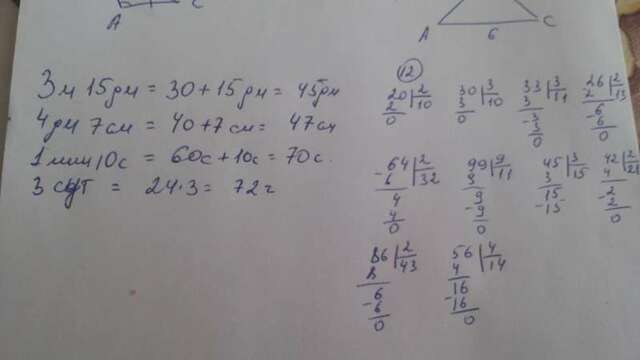 A C
A 6 C
3м 15дм = 30+15дм = 45дм
4дм 7см = 40+7см = 47см
1мин10с = 60с+10с=70с.
3 сут = 24·3= 72ч
12
20 2 30 3 33 3 26 2
2 10 3 10 3 11 2 13
0 0 -3 -6
3 6
0 0
-64 2 99 9 45 3 42 2
6 32 9 11 3 15 4 21
4 -9 15 -2
4 9 -15 2
0 0 0
86 2 56 4
8 43 4 14
-6 -16
6 16
0 0